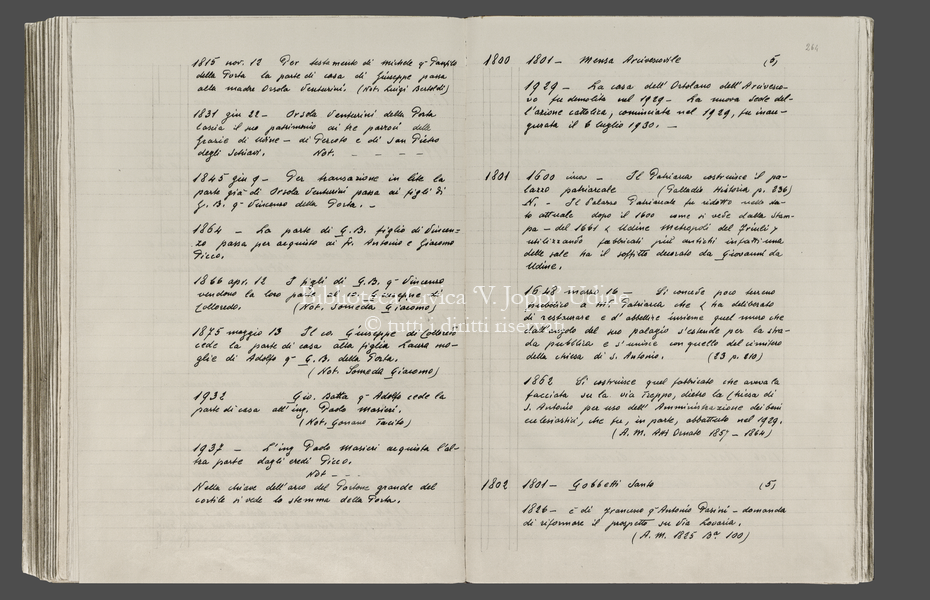 1815 nov. 12 Per testamento di Michele q.m Panfilo
della Porta la parte di casa di Giuseppe passa
alla madre Orsola Venturini. (Not. Luigi Bertoldi)
1831 giu 22 – Orsola Venturini della Porta
lascia il suo patrimonio ai tre parroci delle
Grazie di Udine – di Percoto e di San Pietro
degli Schiavi. Not. – – – –
1845 giu 9 – Per transazione in lite la
parte già di Orsola Venturini passa ai figli di
G. B. q.m Vincenzo della Porta. –
1864 – La parte di G.B. figlio di Vincen=
zo passa per acquisto ai fr. Antonio e Giacomo
Picco.
1866 apr. 12 I figli di G.B. q.m Vincenzo
vendono la loro Giuseppe di
Colloredo. (Not. Someda Giacomo)
1875 maggio 13 Il co. Giuseppe di Colloredo
cede la parte di casa alla figlia Laura mo-
glie di Adolfo q.m G.B. della Porta.
(Not. Someda Giacomo)
1932 Gio. Batta q.m Adolfo cede la
parte di casa all'ing. Paolo Masieri.
(Not. Gonano Tacito)
1937 – L'ing Paolo Masieri acquista l'al-
tra parte dagli eredi Picco.
Not – – –
Nella chiave dell'arco del Portone grande del
cortile si vede lo stemma della Porta.
264
1800 1801 – Mensa Arcivescovile (5)
1929 – La casa dell'Ortolano dell'Arcivesco-
vo fu demolita nel 1929 – La nuova sede del-
l'azione cattolica, cominciata nel 1929, fu inau-
gurata il 6 luglio 1930. –
1801 1600 circa – Il Patriarca costruisce il pa-
lazzo patriarcale (Palladio Historia p. 236)
N. – Il Palazzo Patriarcale fu ridotto nello sta-
to attuale dopo il 1600 come si vede dalla stam-
pa – del 1661 « Udine Metropoli del Friuli »
utilizzando fabbricati più antichi infatti una
delle sale ha il soffitto decorato da Giovanni da
Udine.
1648 marzo 16 – Si concede poco terreno
pubblico a M. Patriarca che « ha deliberato
di restaurare e d'abbellire insieme quel muro che
dall'angolo del suo palagio s'estende per la stra-
da pubblica e s'unisce con quello del cimitero
della chiesa di S. Antonio. (23 p. 210)
1862 Si costruisce quel fabbricato che aveva la
facciata su la via Treppo, dietro la Chiesa di
S. Antonio per uso dell'Amministrazione dei beni
ecclesiastici, che fu, in parte, abbattuto nel 1929.
(A. M. Atti Ornato 1857 – 1864)
1802 1801 – Gobbetti Santo (5)
1826 – è di Francesco q.m Antonio Pasini – domanda
di riformare il prospetto su Via Lovaria.
(A. M. 1825 Ba. 100)
Biblioteca Civica 'V. Joppi' Udine
© tutti i diritti riservati